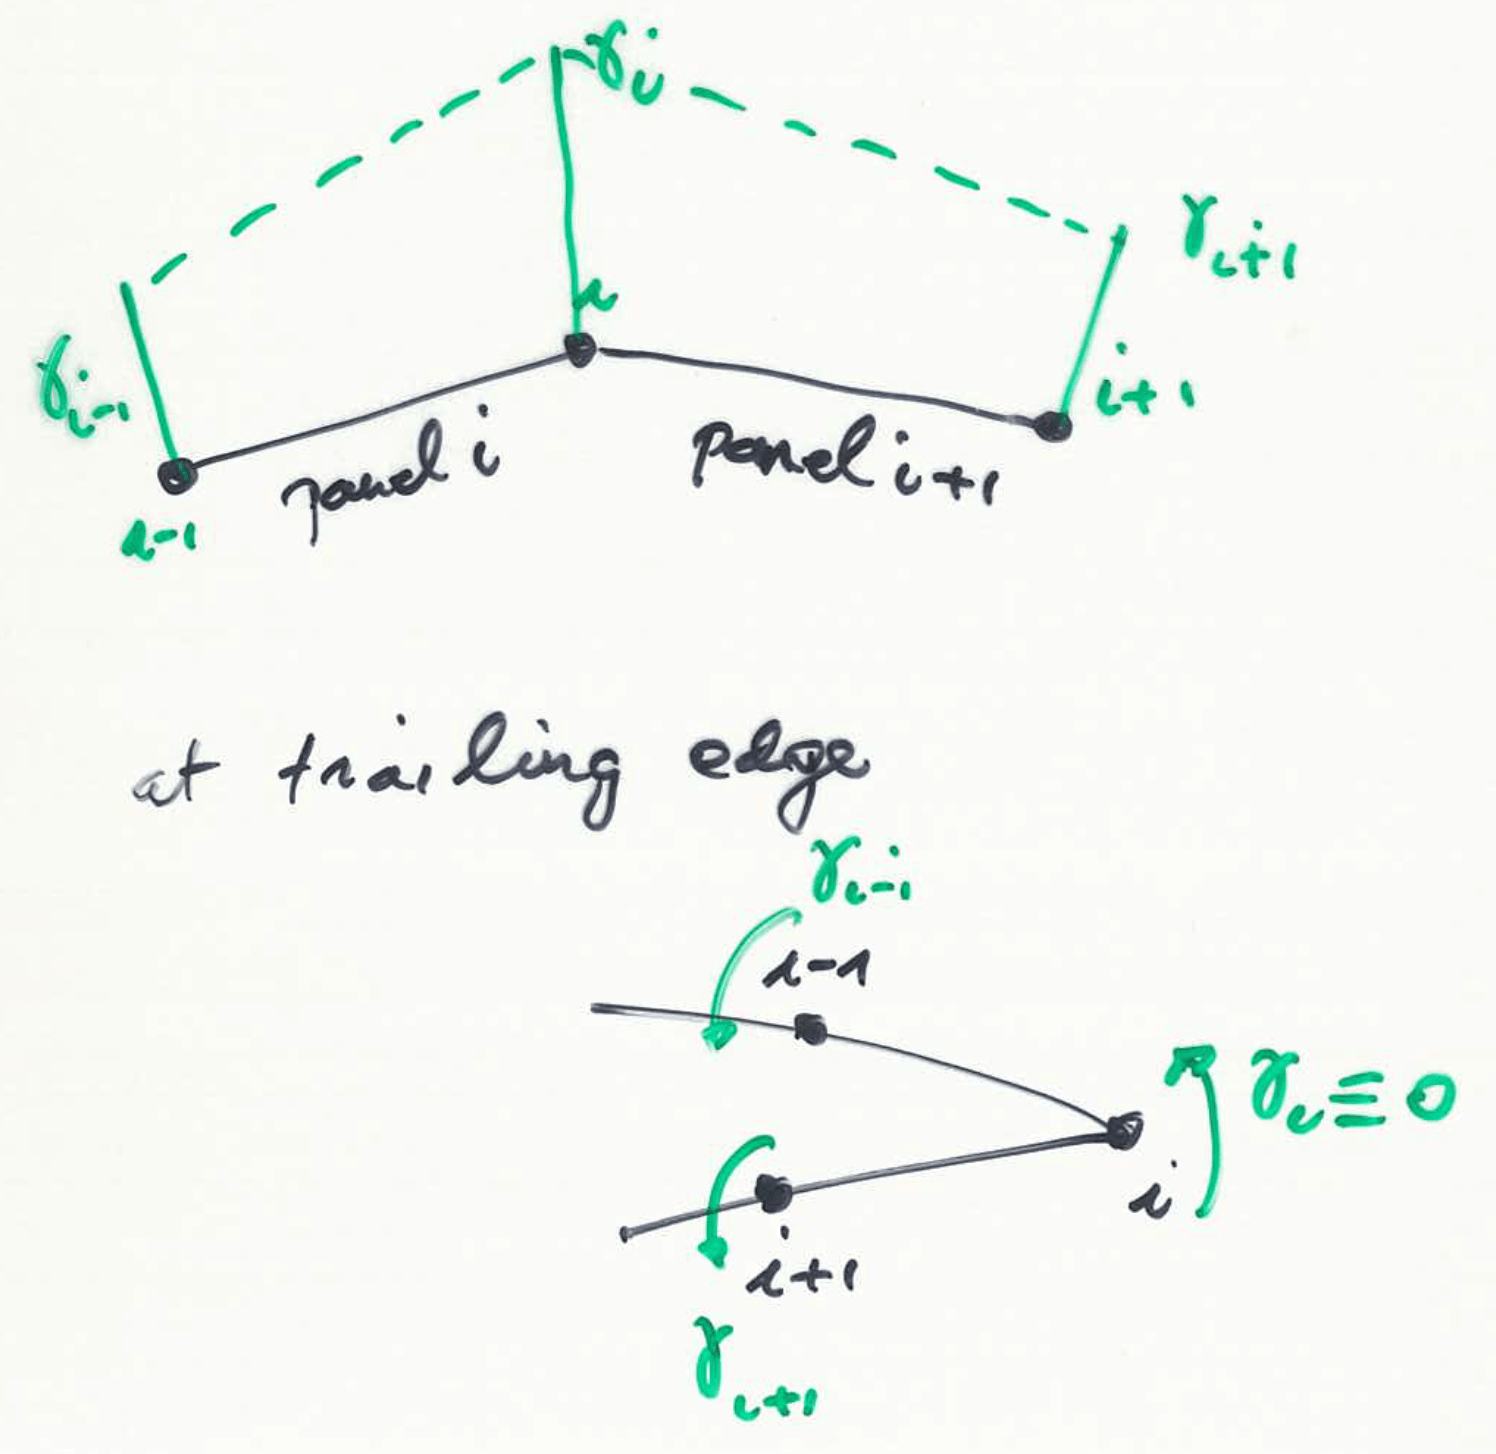 γi
γi+1
γi-1
i
i+1
panel i
panel i+1
i-1
at trailing edge
γi-1
i-1
γi ≡ 0
i
i+1
γi+1